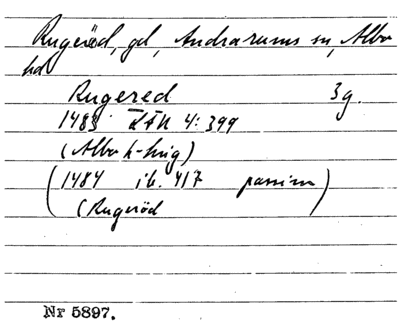 Rugeröd, gd, Andrarums sn, Albo
hd
Rugered 3g.
1483 ÆAU 4:399
(Albo h-ting)
(1484 ib. 417 passim)
(Rugeröd
Nr 5897.